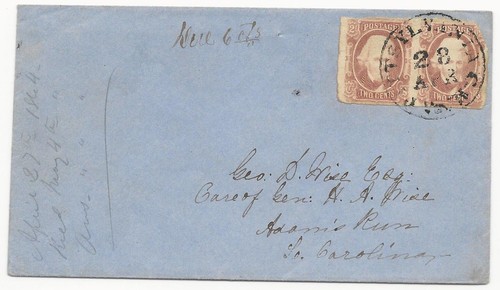 Due 6 cts
POSTAGE
TWO CENTS
POSTAGE
TWO CENTS
28
Geo: D. Wise Esq:
Care of Gen: H. A. Wise
Adam's Run
So. Carolina
April 27th 1864
Recd May 4th "
Ans. " "